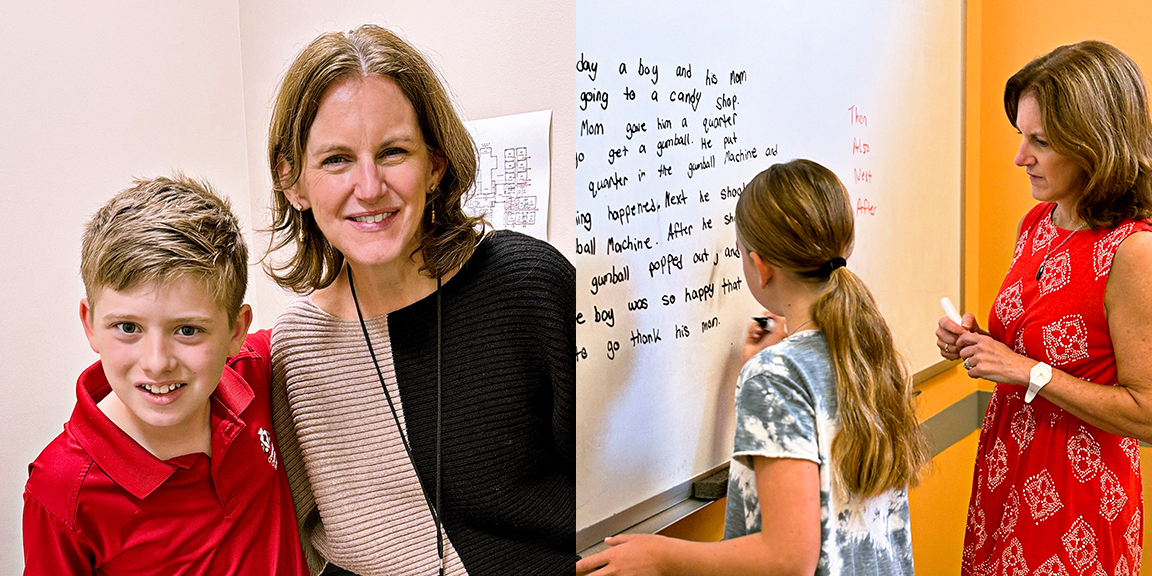 day a boy and his Mom
going to a candy shop.
Mom gave him a quarter
go get a gumball. He put
quarter in the gumball Machine and
ing happened. Next he shook
ball Machine. After he sh
gumball popped out, and
e boy was so happy that
ts go thank his mom.
Then
Also
Next
After